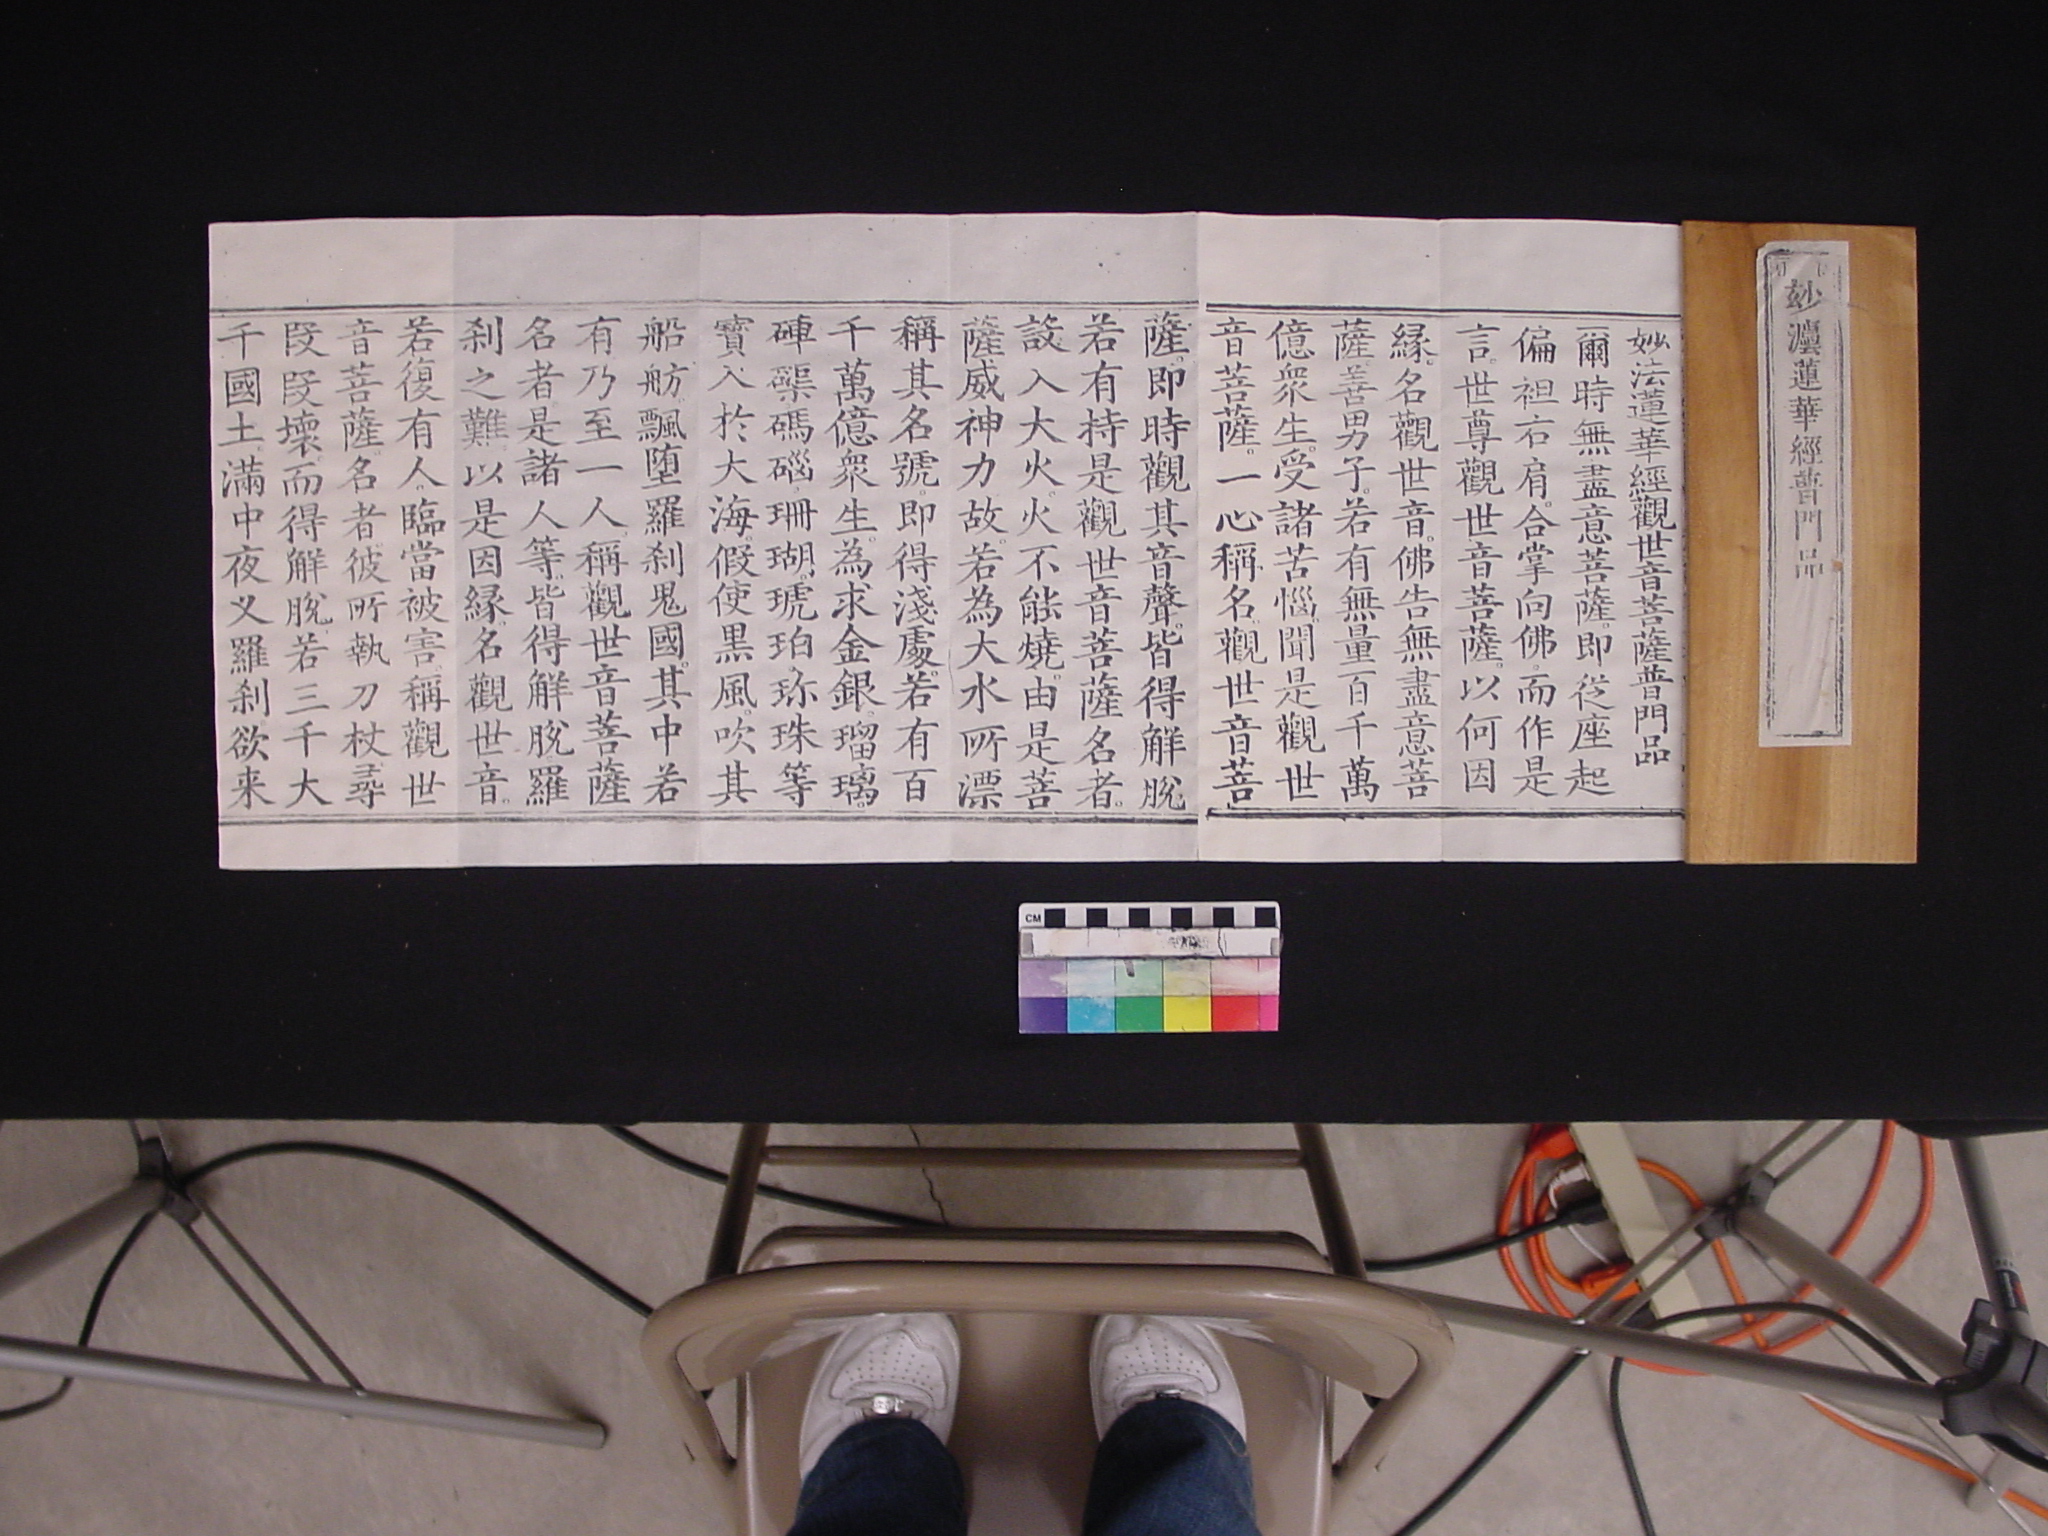 妙灋蓮華經普門品
妙法蓮華經觀世音菩薩普門品
爾時無盡意菩薩。即從座起
偏袒右肩。合掌向佛。而作是
言。世尊觀世音菩薩。以何因
緣。名觀世音。佛告無盡意菩
薩。善男子。若有無量百千萬
億衆生。受諸苦惱。聞是觀世
音菩薩。一心稱名。觀世音菩
薩。即時觀其音聲。皆得解脫
若有持是觀世音菩薩名者。
設入大火。火不能燒。由是菩
薩威神力故。若為大水所漂
稱其名號。即得淺處。若有百
千萬億衆生。為求金銀。瑠璃。
硨磲。碼碯。珊瑚。琥珀。珎珠等
寶入於大海。假使黑風。吹其
船舫。飄墮羅刹鬼國。其中若
有乃至一人。稱觀世音菩薩
名者。是諸人等。皆得解脫羅
刹之難。以是因緣。名觀世音。
若復有人。臨當被害。稱觀世
音菩薩。名者。彼所執刀杖尋
段段壞。而得解脫。若三千大
千國土。滿中夜叉羅刹欲来
CM